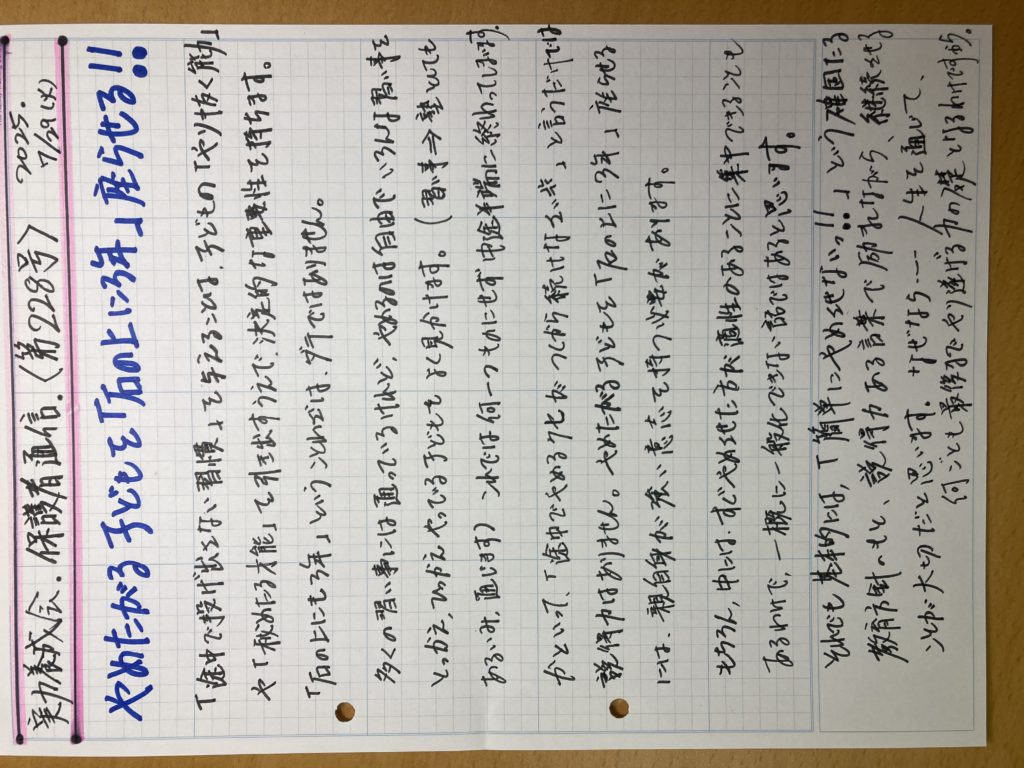 実力養成会.保護者通信.〈第228号〉 2025. 7/29(火)
やめたがる子どもを「石の上に3年」座らせる!!
「途中で投げ出さない習慣」を与えることは、子どもの「やりぬく能力」
や「秘めたる才能」を引き出すうえで、決定的な重要性を持ちます。
「石の上にも3年」ということわざは、ダテではありません。
多くの習い事には通っているけれど、やめるのは自由でいろんな習い事を
とっかえ、ひっかえやってる子どもをよく見かけます。(習い事⇒塾としても
あるいみ、通じます) これでは何一つものにせず中途半端に終わってしまいます。
かといって、「途中でやめるクセがつくから続けなさい」と言うだけでは
説得力はありません。やめたがる子どもを「石の上に3年」座らせる
には、親自身が強い意志を持つ必要があります。
もちろん、中には、すぐやめさせた方が適性のあることに集中できることも
あるわけで、一概に一般化できない話ではあると思います。
それでも基本的には、「簡単にやめさせないっ!!」という確固たる
教育方針のもと、説得力ある言葉で励ましながら、継続させる
ことが大切だと思います。なぜなら…… 人生を通じて、
何ごとも最後までやり遂げる力の礎となるわけですから。